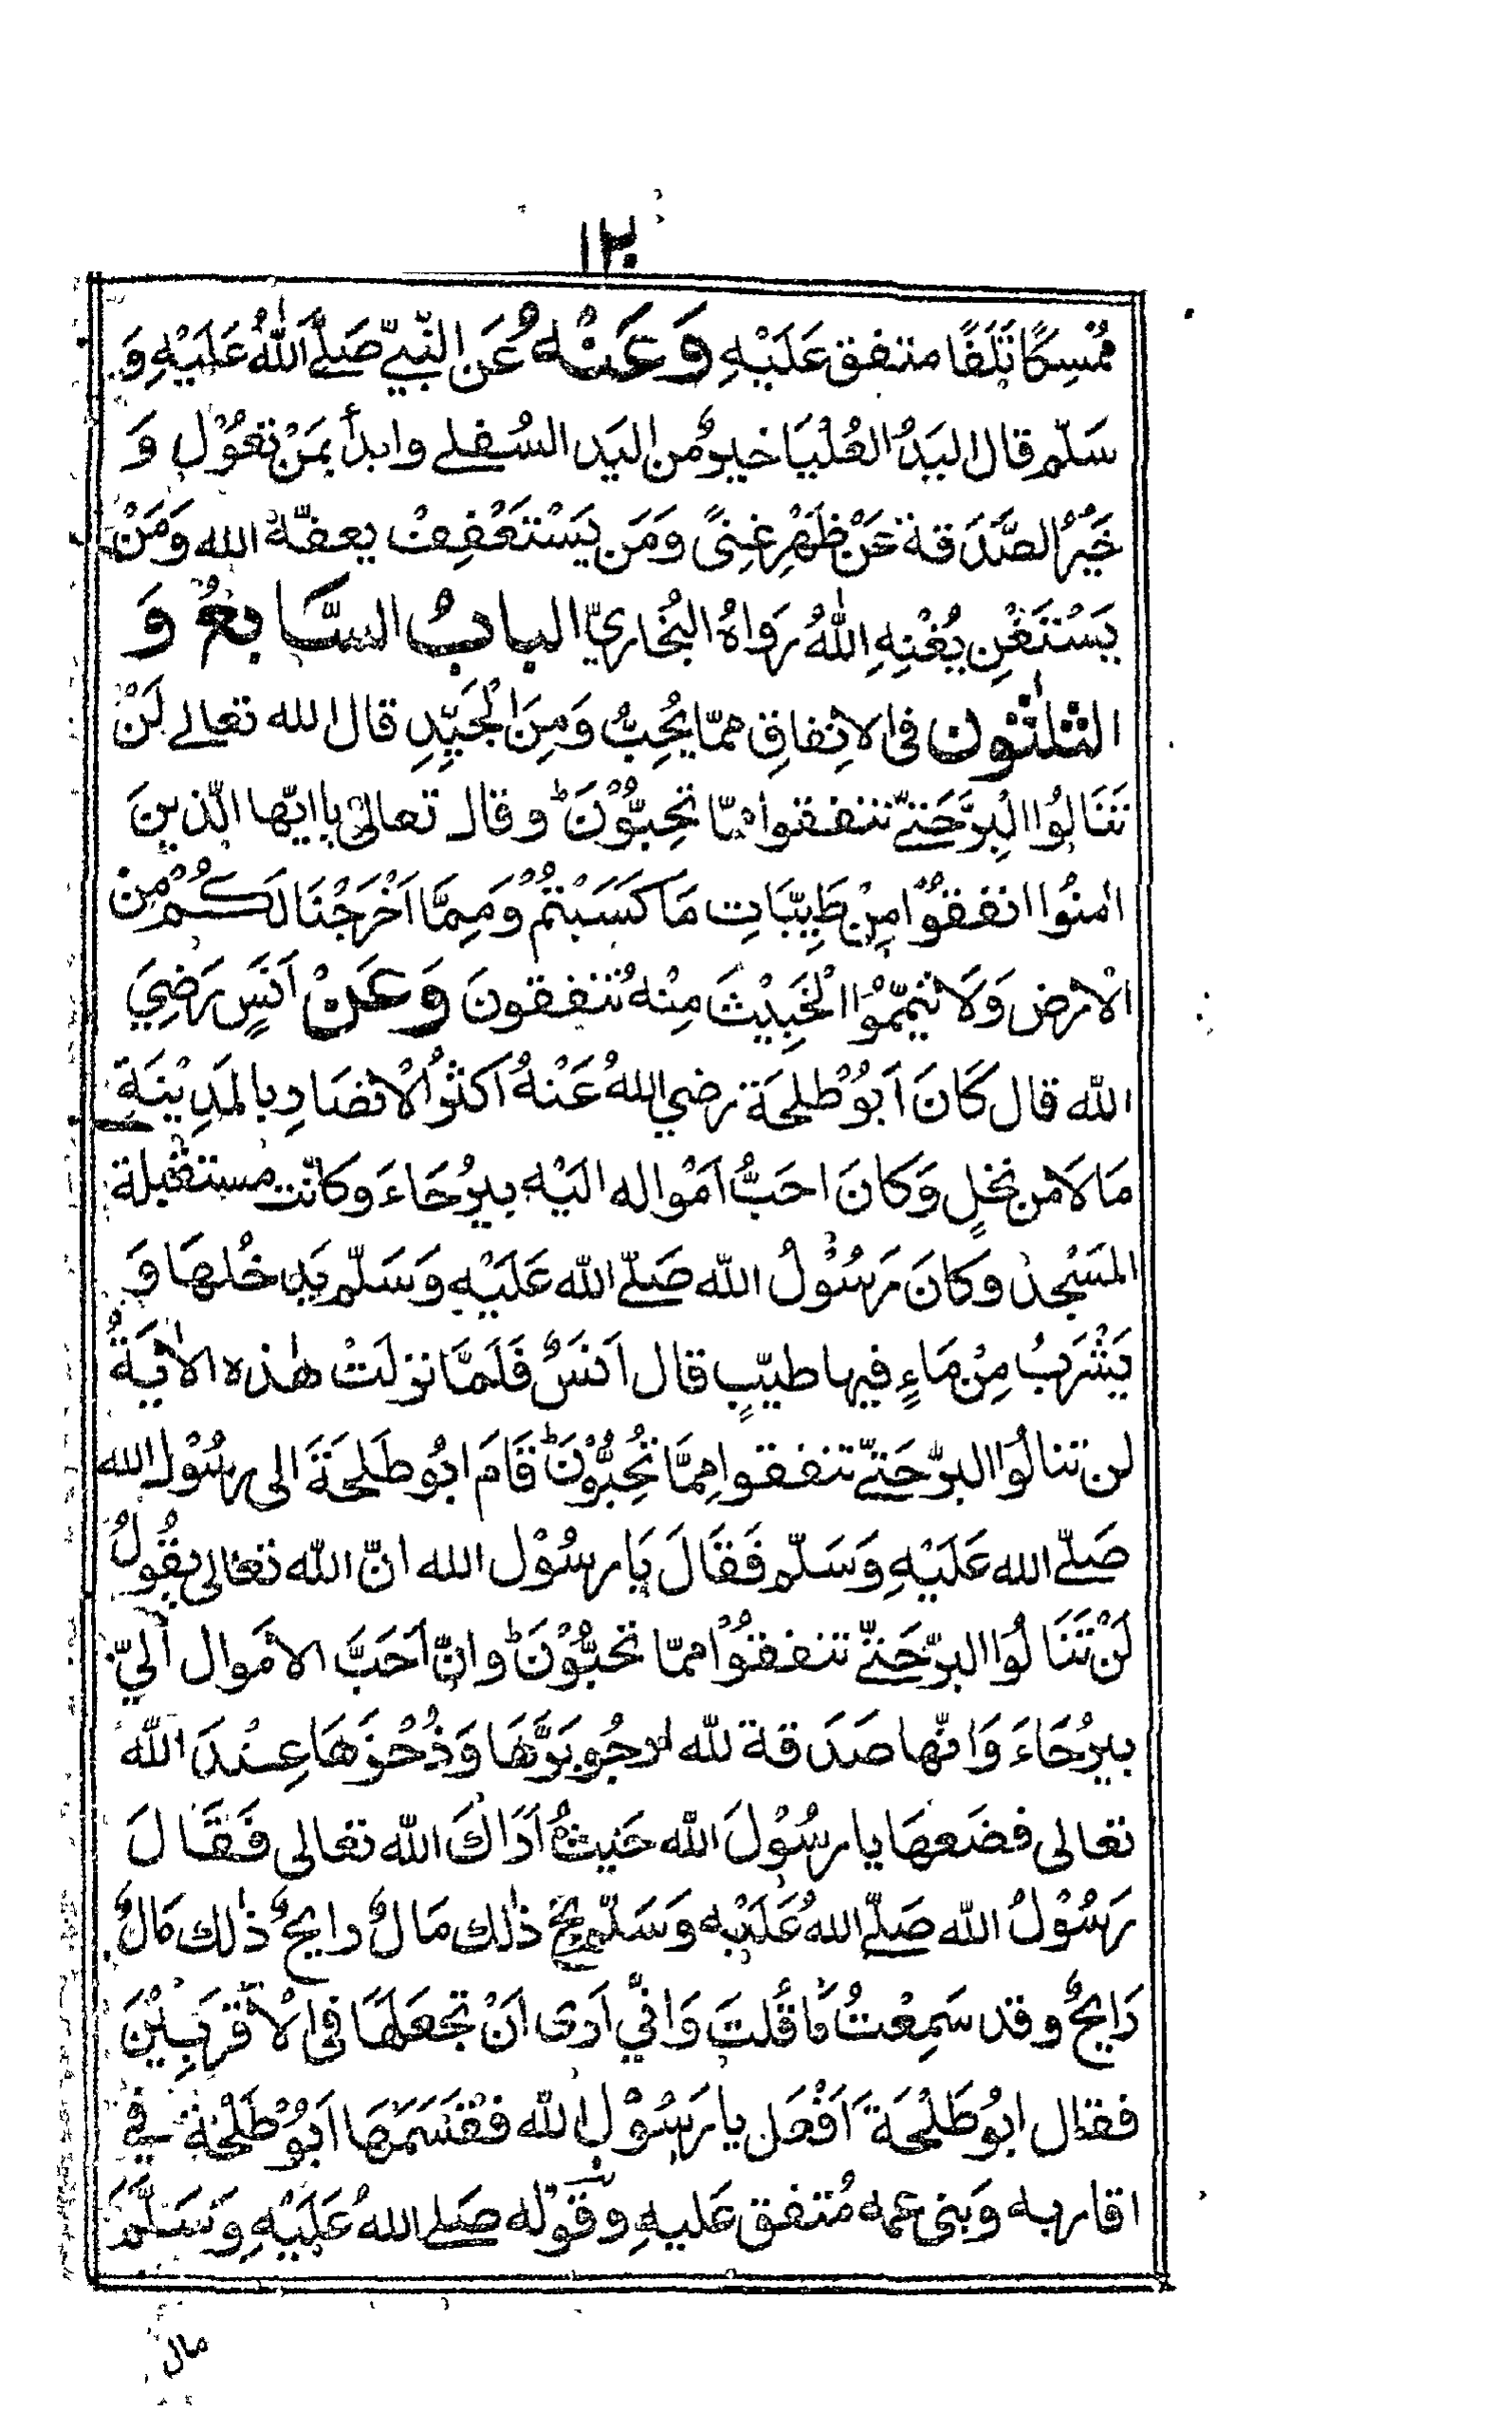 ١٣٠
مُمْسِكًا تَلَفًا متفق عَلَيْهِ وَعَنْهُ عَنِ النَّبِيِّ صَلَّى اللهُ عَلَيْهِ وَ
سَلّم قال اليَدُ العُلْيَا خيرٌ من اليَدِ السُفلى وابدأ بمَنْ تعُوْلُ وَ
خَيْرُ الصَّدَقة عَنْ ظَهْرِ غِنىً وَمَن يَسْتَعْفِفْ يعفّهُ الله وَمَنْ
يَسْتَغْنِ يُغْنِهِ اللهُ رَوَاهُ البُخاريّ البابُ السَّابعُ وَ
الثلٰثون فى الاِنفاقِ ممّا يُحِبُّ وَمِنَ الْجَيِّدِ قال الله تعالى لَنْ
تَنَالُوا الْبِرَّ حَتّى تنفقوا ممّا تُحِبُّوْنَ ط وقال تعالىٰ ياايّها الّذينَ
اٰمنُوا انفقُوْا مِنْ طَيِّبَاتِ مَا كَسَبْتُمْ وَمِمَّا اَخْرَجْنَا لَكُمْ مِنَ
الْارض وَلَا تيمّمُوْا الْخَبِيْثَ مِنْهُ تنفقونَ وَعَنْ اَنَسٍ رَضِيَ
الله قال كَانَ اَبُوْ طلحَة رضي اللهُ عَنْهُ اَكثرُ الْاَنصَارِ بِالمَدِيْنَةِ
مَالَا من نخلٍ وَكانَ احَبُّ اَمْوَاله اليْهِ بيرُحَاءَ وَكانتْ مستقبلة
المَسْجد وكانَ رَسُوْلُ الله صَلّى الله عَلَيْهِ وَسَلّم يَدخُلهَا وَ
يَشْرَبُ مِنْ مَاءٍ فيها طيّبٍ قال اَنَسٌ فَلَمَّا نزلَتْ هٰذه الاٰيَةُ
لن تنالُوا البرّ حَتّى تنفقوا مِمَّا تُحِبُّوْنَ ط قَامَ ابُو طَلحَةَ الى رسُوْل الله
صَلّى الله عَلَيْهِ وَسَلّم فَقَالَ يَا رسُوْل الله انّ الله تعَالى يقُولُ
لَنْ تَنَالُوا البرّ حَتّى تنفقُوْا ممّا تحبُّوْنَ ط وانّ اَحَبَّ الامَوال اليّ
بيرُحَاءَ وَانّها صَدَقة لله ارجُو بَرَّهَا وَذُخْرَهَا عِنْدَ الله
تعالى فضَعهَا يا رسُوْلَ الله حَيثُ اَرَاكَ الله تعَالى فَقَالَ
رَسُوْلُ الله صَلّى اللهُ عَلَيْهِ وَسَلّم بخْ ذٰلك مَالٌ رابحٌ ذٰلك مَالٌ
رَابحٌ وقد سَمِعْتُ مَا قُلتَ وَانّي اَرَى اَنْ تجعَلهَا فى الْاَقْرَبِيْنَ
فقال ابُو طَلْحَةَ اَفْعَل يا رَسُوْل الله فقسَمَهَا اَبُوْ طَلْحَة في
اقاربه وَبنى عمه مُتفق عَليهِ وقَوْله صَلى اللهُ عَلَيْهِ وَسَلَّمَ
مال